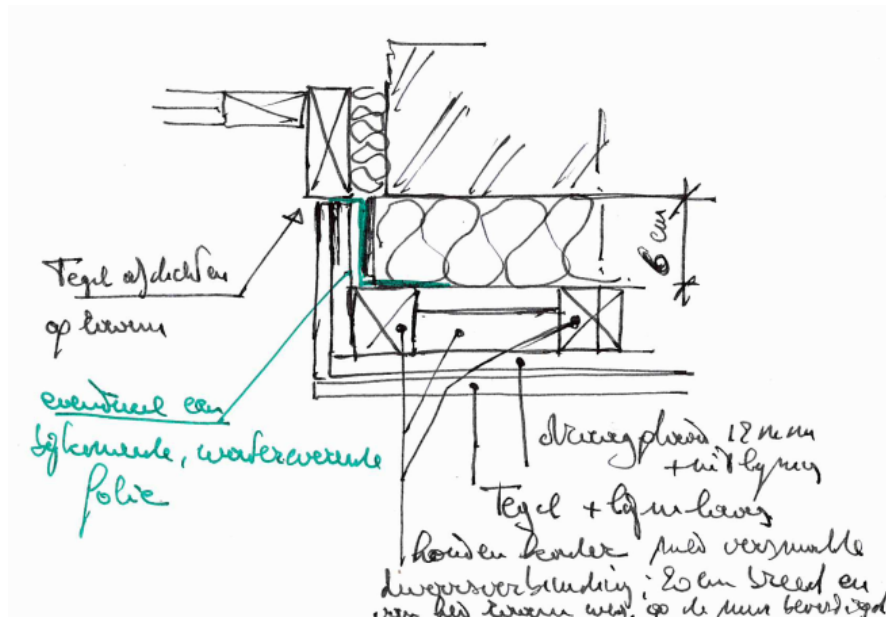 6 cm
Tegel afdichten
op kozem
eventueel een
bijkomende, waterwerende
folie
draagplaat 12 mm
Tegel + lijmlaag
houten kader met versmalde
dwarsverbinding: 20 cm breed en
van het kozem weg, op de muur bevestigd